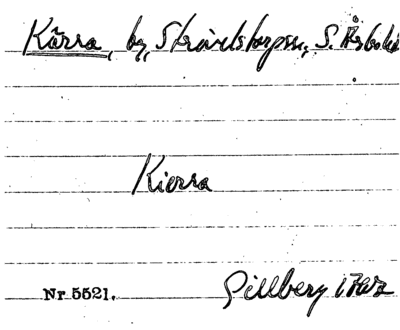 Kärra, by, Skrävelstorps sn, S. Åsbo hd
Kierra
Nr 5521. Gillberg 1767